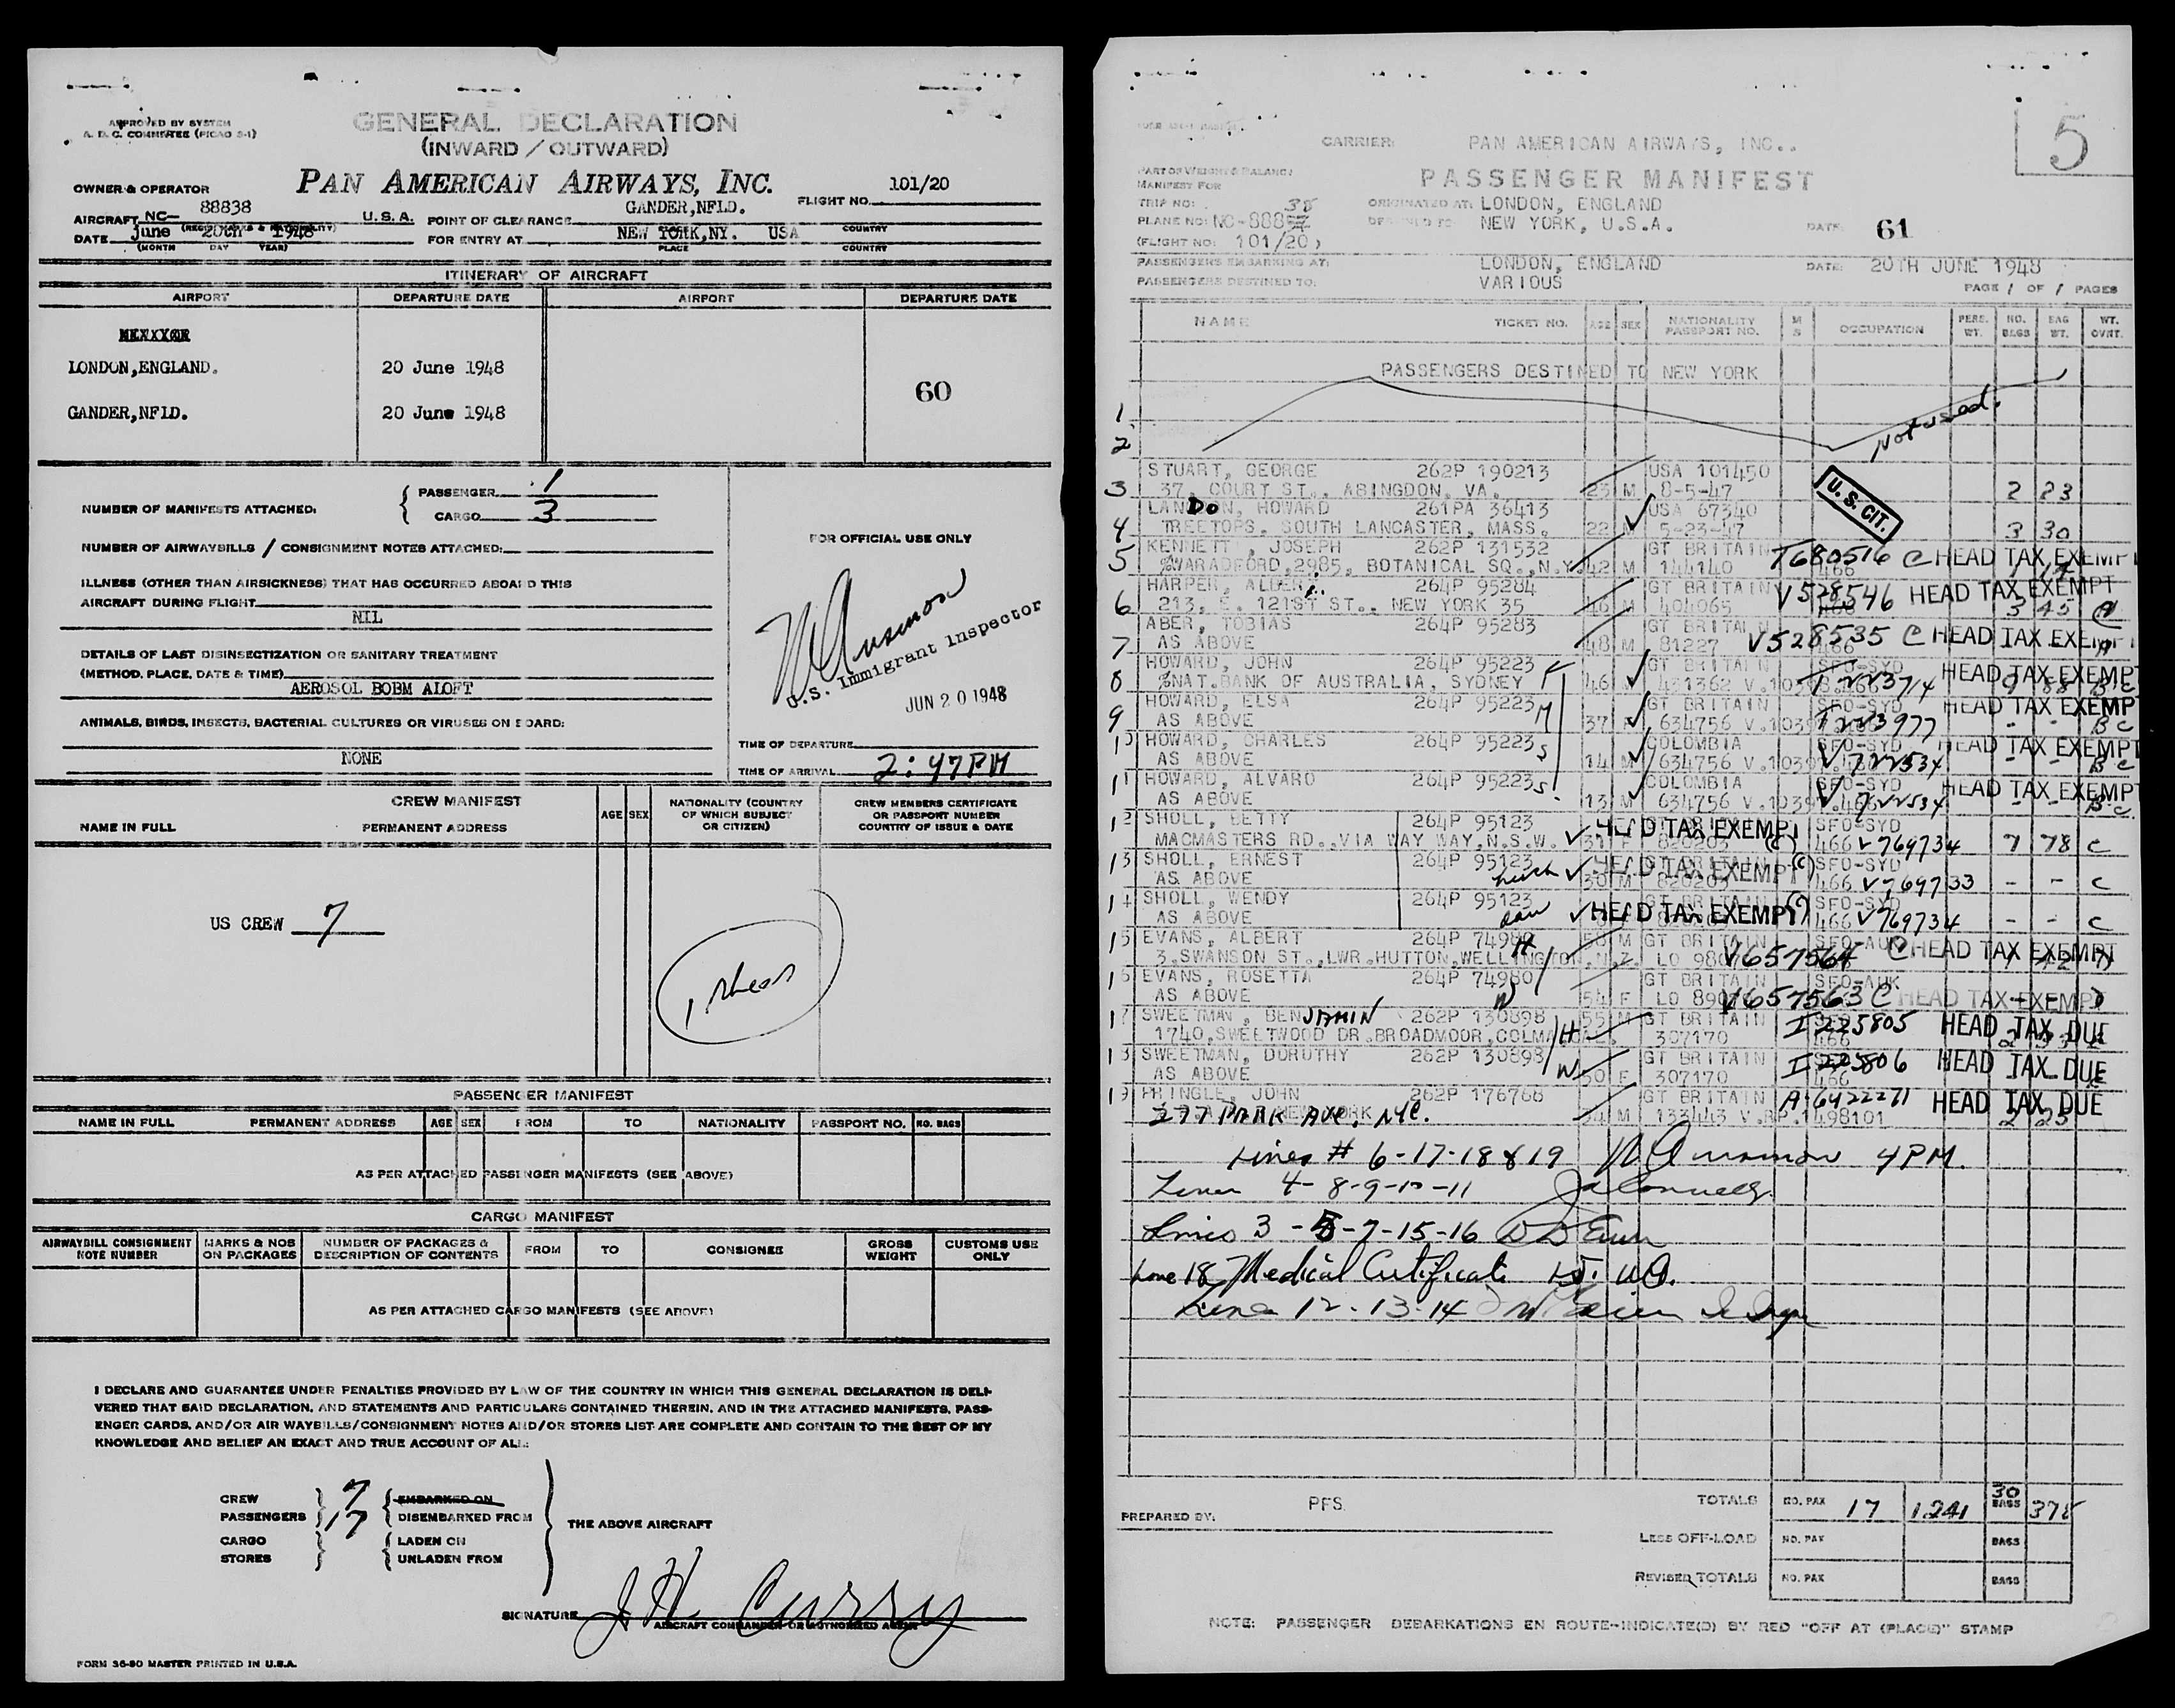 APPROVED BY SYSTEM
A. D. C. COMMITTEE (PICAO S-1)
GENERAL DECLARATION
(INWARD / OUTWARD)
OWNER & OPERATOR PAN AMERICAN AIRWAYS, INC. FLIGHT NO. 101/20
AIRCRAFT NC- 88838 U.S.A. POINT OF CLEARANCE GANDER,NFLD.
(REGIS. MARKS & NATIONALITY) COUNTRY
DATE June 20th 1948 FOR ENTRY AT NEW YORK,NY. USA
(MONTH DAY YEAR) PLACE COUNTRY
ITINERARY OF AIRCRAFT
AIRPORT DEPARTURE DATE AIRPORT DEPARTURE DATE
LONDON,ENGLAND. 20 June 1948
60
GANDER,NFLD. 20 June 1948
NUMBER OF MANIFESTS ATTACHED: PASSENGER 1
CARGO 3
NUMBER OF AIRWAYBILLS / CONSIGNMENT NOTES ATTACHED:
FOR OFFICIAL USE ONLY
ILLNESS (OTHER THAN AIRSICKNESS) THAT HAS OCCURRED ABOARD THIS
AIRCRAFT DURING FLIGHT
NIL
DETAILS OF LAST DISINSECTIZATION OR SANITARY TREATMENT
(METHOD, PLACE, DATE & TIME)
AEROSOL BOBM ALOFT
U.S. Immigrant Inspector
JUN 20 1948
ANIMALS, BIRDS, INSECTS, BACTERIAL CULTURES OR VIRUSES ON BOARD:
NONE
TIME OF DEPARTURE
TIME OF ARRIVAL 2:47PM
CREW MANIFEST
NAME IN FULL PERMANENT ADDRESS AGE SEX NATIONALITY (COUNTRY OF WHICH SUBJECT OR CITIZEN) CREW MEMBERS CERTIFICATE OR PASSPORT NUMBER COUNTRY OF ISSUE & DATE
US CREW 7
PASSENGER MANIFEST
NAME IN FULL PERMANENT ADDRESS AGE SEX FROM TO NATIONALITY PASSPORT NO. NO. BAGS
AS PER ATTACHED PASSENGER MANIFESTS (SEE ABOVE)
CARGO MANIFEST
AIRWAYBILL CONSIGNMENT NOTE NUMBER MARKS & NOS ON PACKAGES NUMBER OF PACKAGES & DESCRIPTION OF CONTENTS FROM TO CONSIGNEE GROSS WEIGHT CUSTOMS USE ONLY
AS PER ATTACHED CARGO MANIFESTS (SEE ABOVE)
I DECLARE AND GUARANTEE UNDER PENALTIES PROVIDED BY LAW OF THE COUNTRY IN WHICH THIS GENERAL DECLARATION IS DELI-
VERED THAT SAID DECLARATION, AND STATEMENTS AND PARTICULARS CONTAINED THEREIN, AND IN THE ATTACHED MANIFESTS, PASS-
ENGER CARDS, AND/OR AIR WAYBILLS/CONSIGNMENT NOTES AND/OR STORES LIST ARE COMPLETE AND CONTAIN TO THE BEST OF MY
KNOWLEDGE AND BELIEF AN EXACT AND TRUE ACCOUNT OF ALL:
CREW 7 EMBARKED ON
PASSENGERS 17 DISEMBARKED FROM
THE ABOVE AIRCRAFT
CARGO LADEN ON
STORES UNLADEN FROM
SIGNATURE J H Curry
AIRCRAFT COMMANDER OR AUTHORIZED AGENT
FORM 36-80 MASTER PRINTED IN U.S.A.
5
CARRIER: PAN AMERICAN AIRWAYS, INC..
PART OF WEIGHT & BALANCE
MANIFEST FOR
PASSENGER MANIFEST
TRIP NO: ORIGINATED AT: LONDON, ENGLAND
PLANE NO: NC-888 38 DESTINED TO: NEW YORK, U.S.A. DATE: 61
(FLIGHT NO: 101/20)
PASSENGERS EMBARKING AT: LONDON, ENGLAND DATE: 20TH JUNE 1948
PASSENGERS DESTINED TO: VARIOUS PAGE 1 OF 1 PAGES
NAME TICKET NO. AGE SEX NATIONALITY PASSPORT NO. M S OCCUPATION PERS. WT. NO. BAGS BAG WT. WT. OVNT.
PASSENGERS DESTINED TO NEW YORK
1
Not used.
2
STUART, GEORGE 262P 190213 USA 101450
3 37, COURT ST., ABINGDON, VA. 23 M 8-5-47 2 23
U.S. CIT.
LANDON, HOWARD 261PA 36413 USA 67340
Do
4 TREETOPS, SOUTH LANCASTER, MASS. 22 M 5-23-47 3 30
KENNETT, JOSEPH 262P 131532 GT BRITAIN T680516 C HEAD TAX EXEMPT
5 %WARADFORD,2985, BOTANICAL SQ.,N.Y. 42 M 144140 466
HARPER, ALBERT 264P 95284 GT BRITAIN V528546 HEAD TAX EXEMPT
6 213, E. 121ST ST., NEW YORK 35 46 M 404065 466 3 45
ABER, TOBIAS 264P 95283 GT BRITAIN V528535 C HEAD TAX EXEMPT
7 AS ABOVE 48 M 81227 466
HOWARD, JOHN 264P 95223 GT BRITAIN SFO-SYD HEAD TAX EXEMPT
8 %NAT.BANK OF AUSTRALIA, SYDNEY F 46 M 431362 9 88 B C
HOWARD, ELSA 264P 95223 M GT BRITAIN SFO-SYD HEAD TAX EXEMPT
9 AS ABOVE 37 F 634756 - - B C
10 HOWARD, CHARLES 264P 95223 S COLOMBIA SFO-SYD HEAD TAX EXEMPT
AS ABOVE 14 M 634756 - - B C
11 HOWARD, ALVARO 264P 95223 S. COLOMBIA HEAD TAX EXEMPT
AS ABOVE 13 M 634756 - - B C.
12 SHOLL, BETTY 264P 95123 HEAD TAX EXEMPT SFO-SYD
MACMASTERS RD.,VIA WAY WAY,N.S.W. 31 F 820203 (C) 466 V769734 7 78 C
13 SHOLL, ERNEST 264P 95123 HEAD TAX EXEMPT (C) SFO-SYD
AS ABOVE 30 M 820203 466 V769733 - - C
14 SHOLL, WENDY 264P 95123 HEAD TAX EXEMPT SFO-SYD
AS ABOVE dau 466 V769734 - - C
15 EVANS, ALBERT 264P 74980 H 58 M GT BRITAIN SFO-AUK V657564 C HEAD TAX EXEMPT
3.SWANSON ST.,LWR.HUTTON,WELLINGTON,N.Z.
16 EVANS, ROSETTA 264P 74980 GT BRITAIN SFO-AUK
AS ABOVE W 54 F V657563 C HEAD TAX EXEMPT
17 SWEETMAN, BENJAMIN 262P 130898 55 M GT BRITAIN I225805 HEAD TAX DUE
1740,SWEETWOOD DR.BROADMOOR,COLMA H 307170 466
18 SWEETMAN, DOROTHY 262P 130898 GT BRITAIN I225806 HEAD TAX DUE
AS ABOVE W 50 F 307170 466
19 PRINGLE, JOHN 262P 176768 GT BRITAIN A-6422271 HEAD TAX DUE
277 PARK AVE, NYC. M 133443 V.RP.1498101 2 25
Lines # 6-17-18 & 19 4PM.
Lines 4-8-9-10-11
Lines 3-5-7-15-16
Line 18 Medical Certificate
Lines 12-13-14
PREPARED BY: PFS. TOTALS NO. PAX 17 1241 30 BAGS 378
LESS OFF-LOAD NO. PAX BAGS
REVISED TOTALS NO. PAX BAGS
NOTE: PASSENGER DEBARKATIONS EN ROUTE-INDICATE(D) BY RED "OFF AT (PLACE)" STAMP